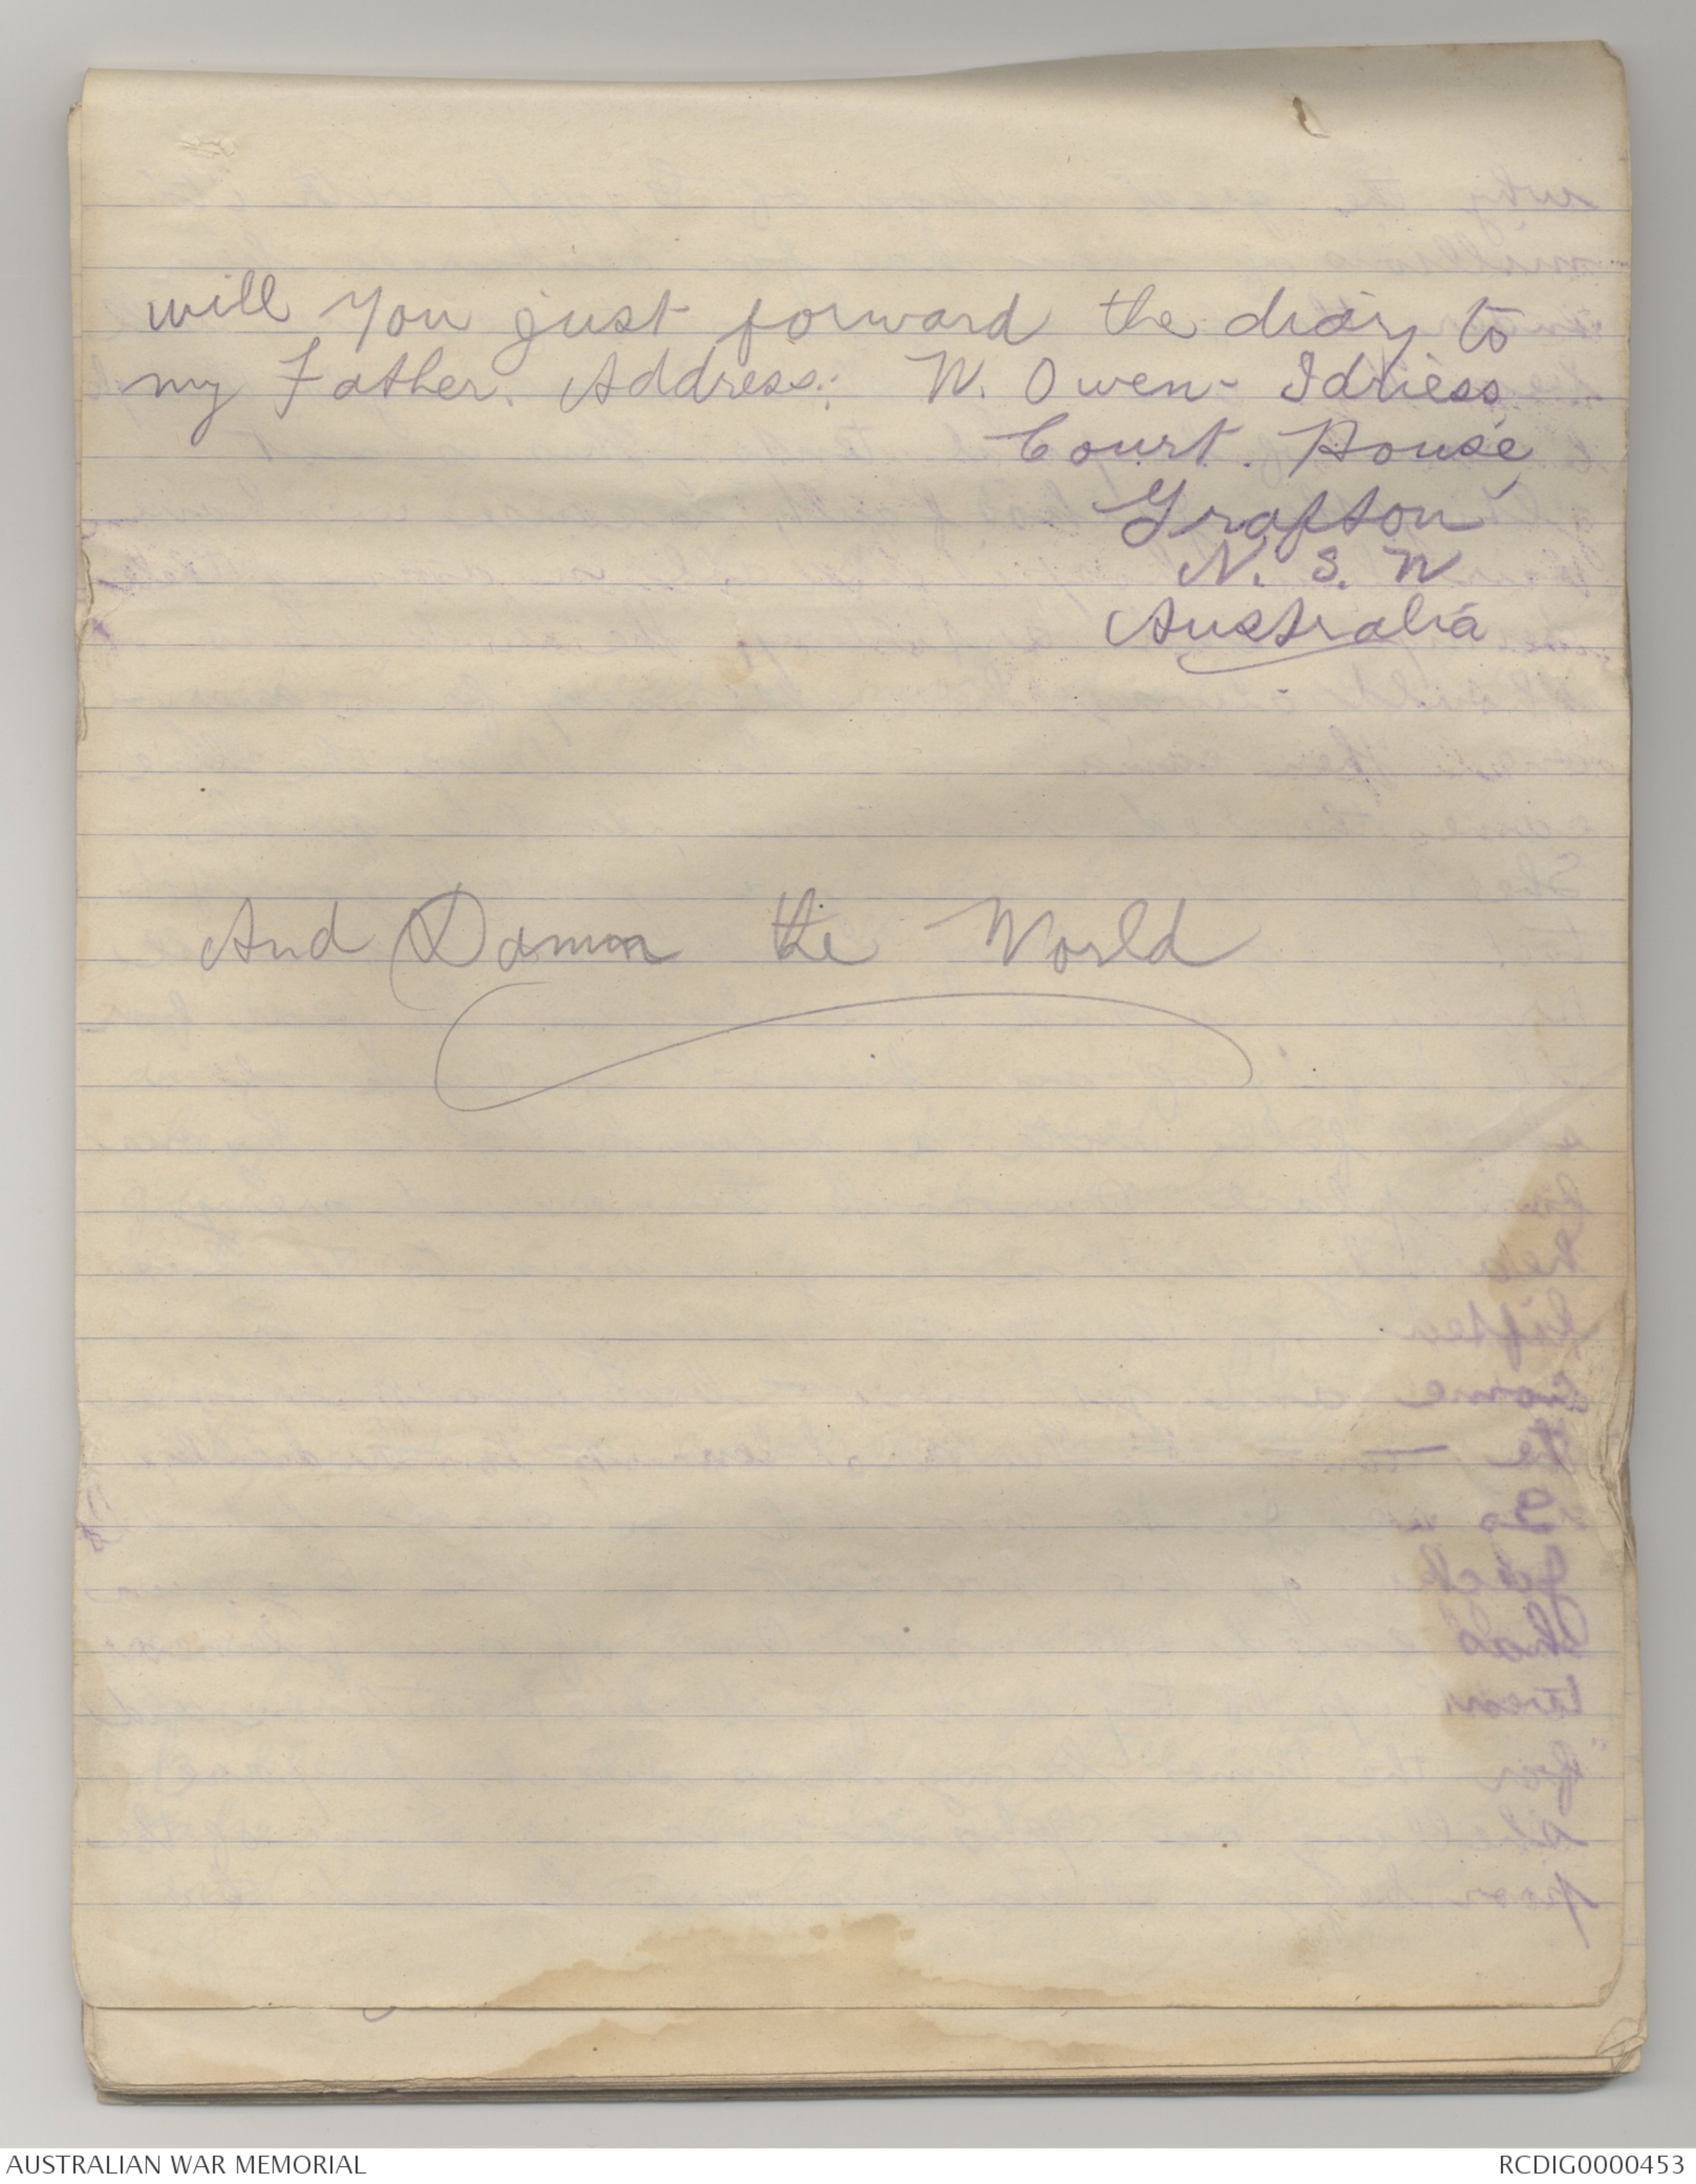 will you just forward the diary to
my Father. Address: W. Owen-Idriess
Court. House
Grafton
N. S. W
Australia
And Damn the World
AUSTRALIAN WAR MEMORIAL
RCDIG0000453